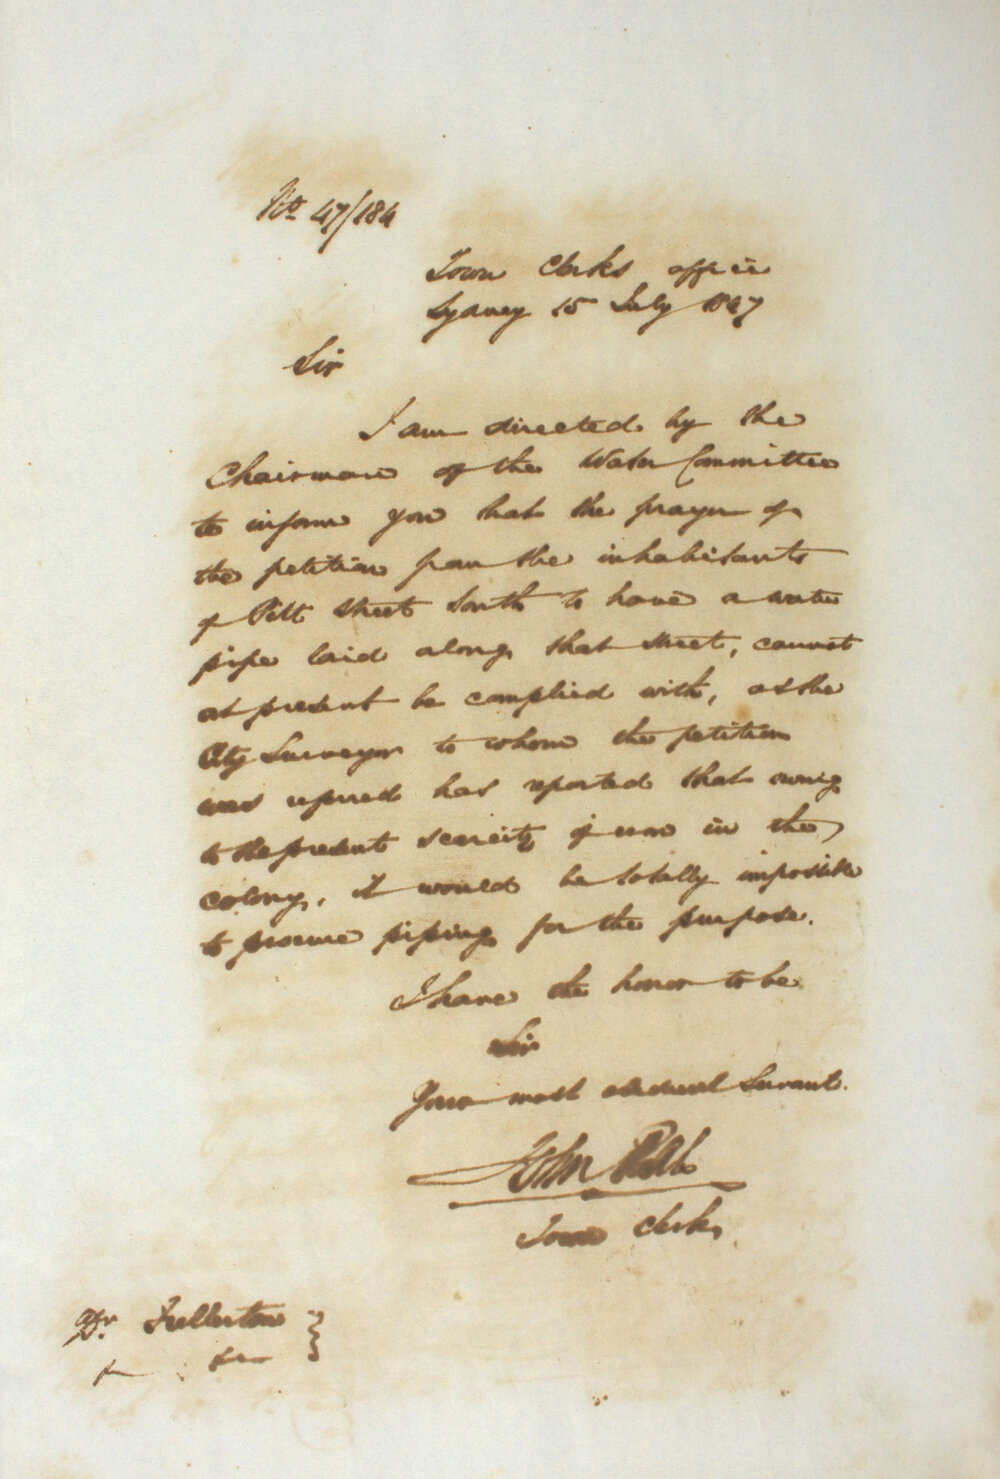 No 47/184
Town Clerks office
Sydney 15 July 1847
Sir
I am directed by the
Chairman of the Water Committee
to inform you that the prayer of
the petition from the inhabitants
of Pitt Street South to have a water
pipe laid along that street, cannot
at present be complied with, as the
City Surveyor to whom the petition
was referred has reported that owing
to the present scarcity of iron in the
colony, it would be totally impossible
to procure piping for the purpose.
I have the honor to be
Sir
Your most obedient Servant.
John
Town Clerk
Dr Fullerton